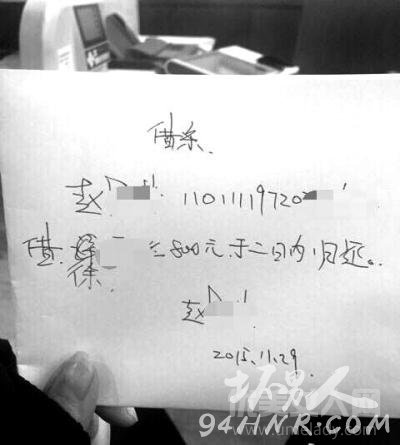 借条.
赵 11011119720
借 徐 800元于二日内归还。
赵
2015.11.29
扒男人
94HNR.COM